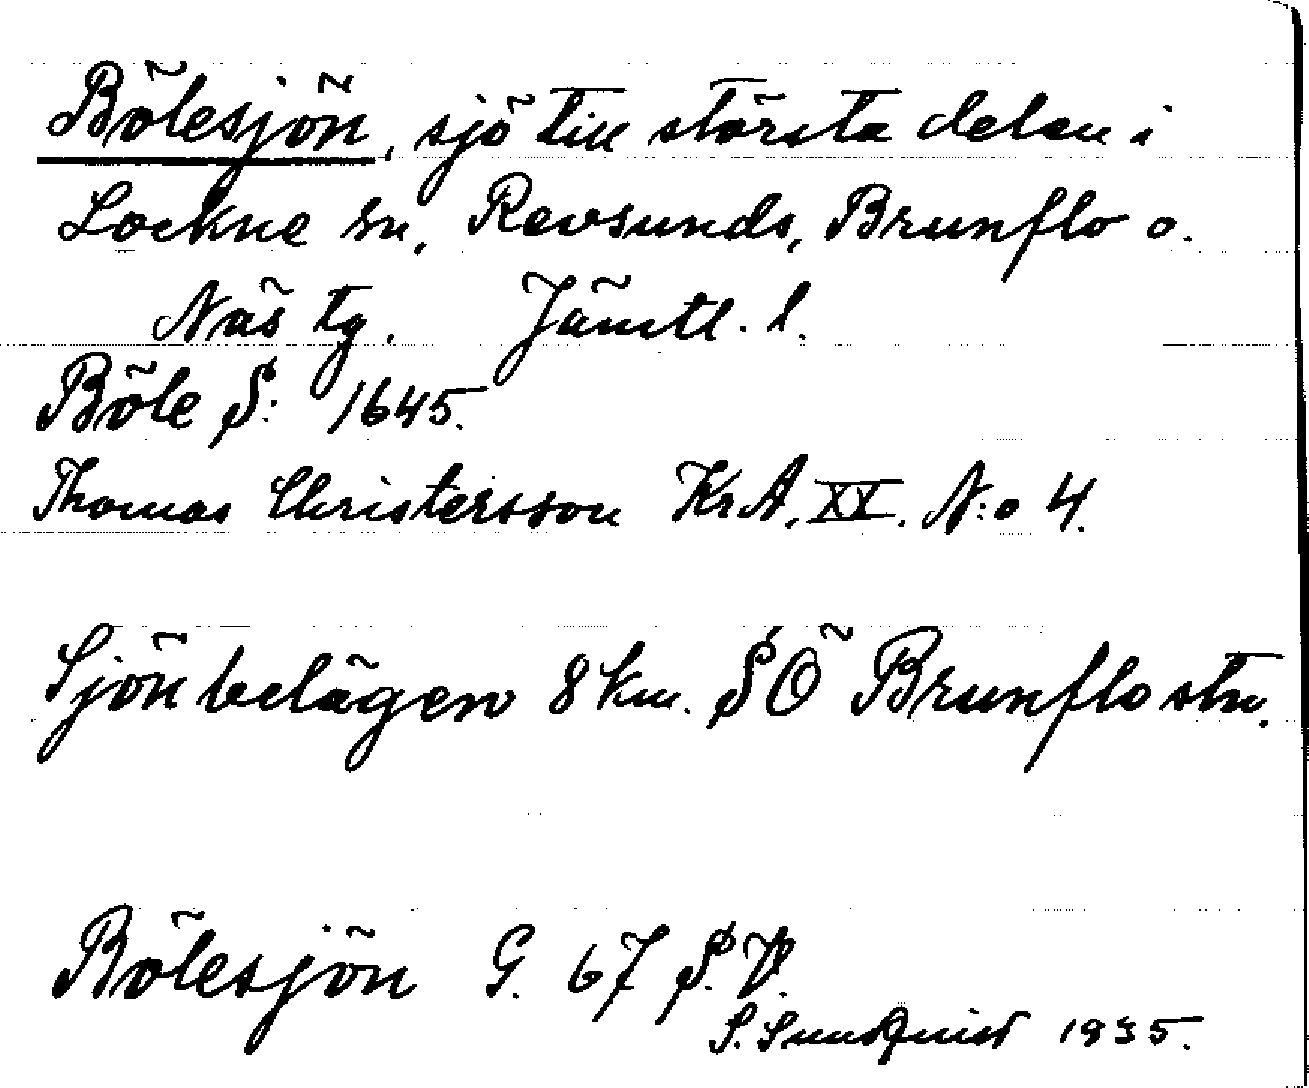 Bölesjön, sjö till största delen i
Lockne sn, Revsunds, Brunflo o.
Näs tg. Jämtl. l.
Böle S: 1645.
Thomas Christersson KrA. XX. N:o 4.
Sjön belägen 8 km. SÖ Brunflo stn.
Bölesjön G. 67 S.V.
S. Sundquist 1935.